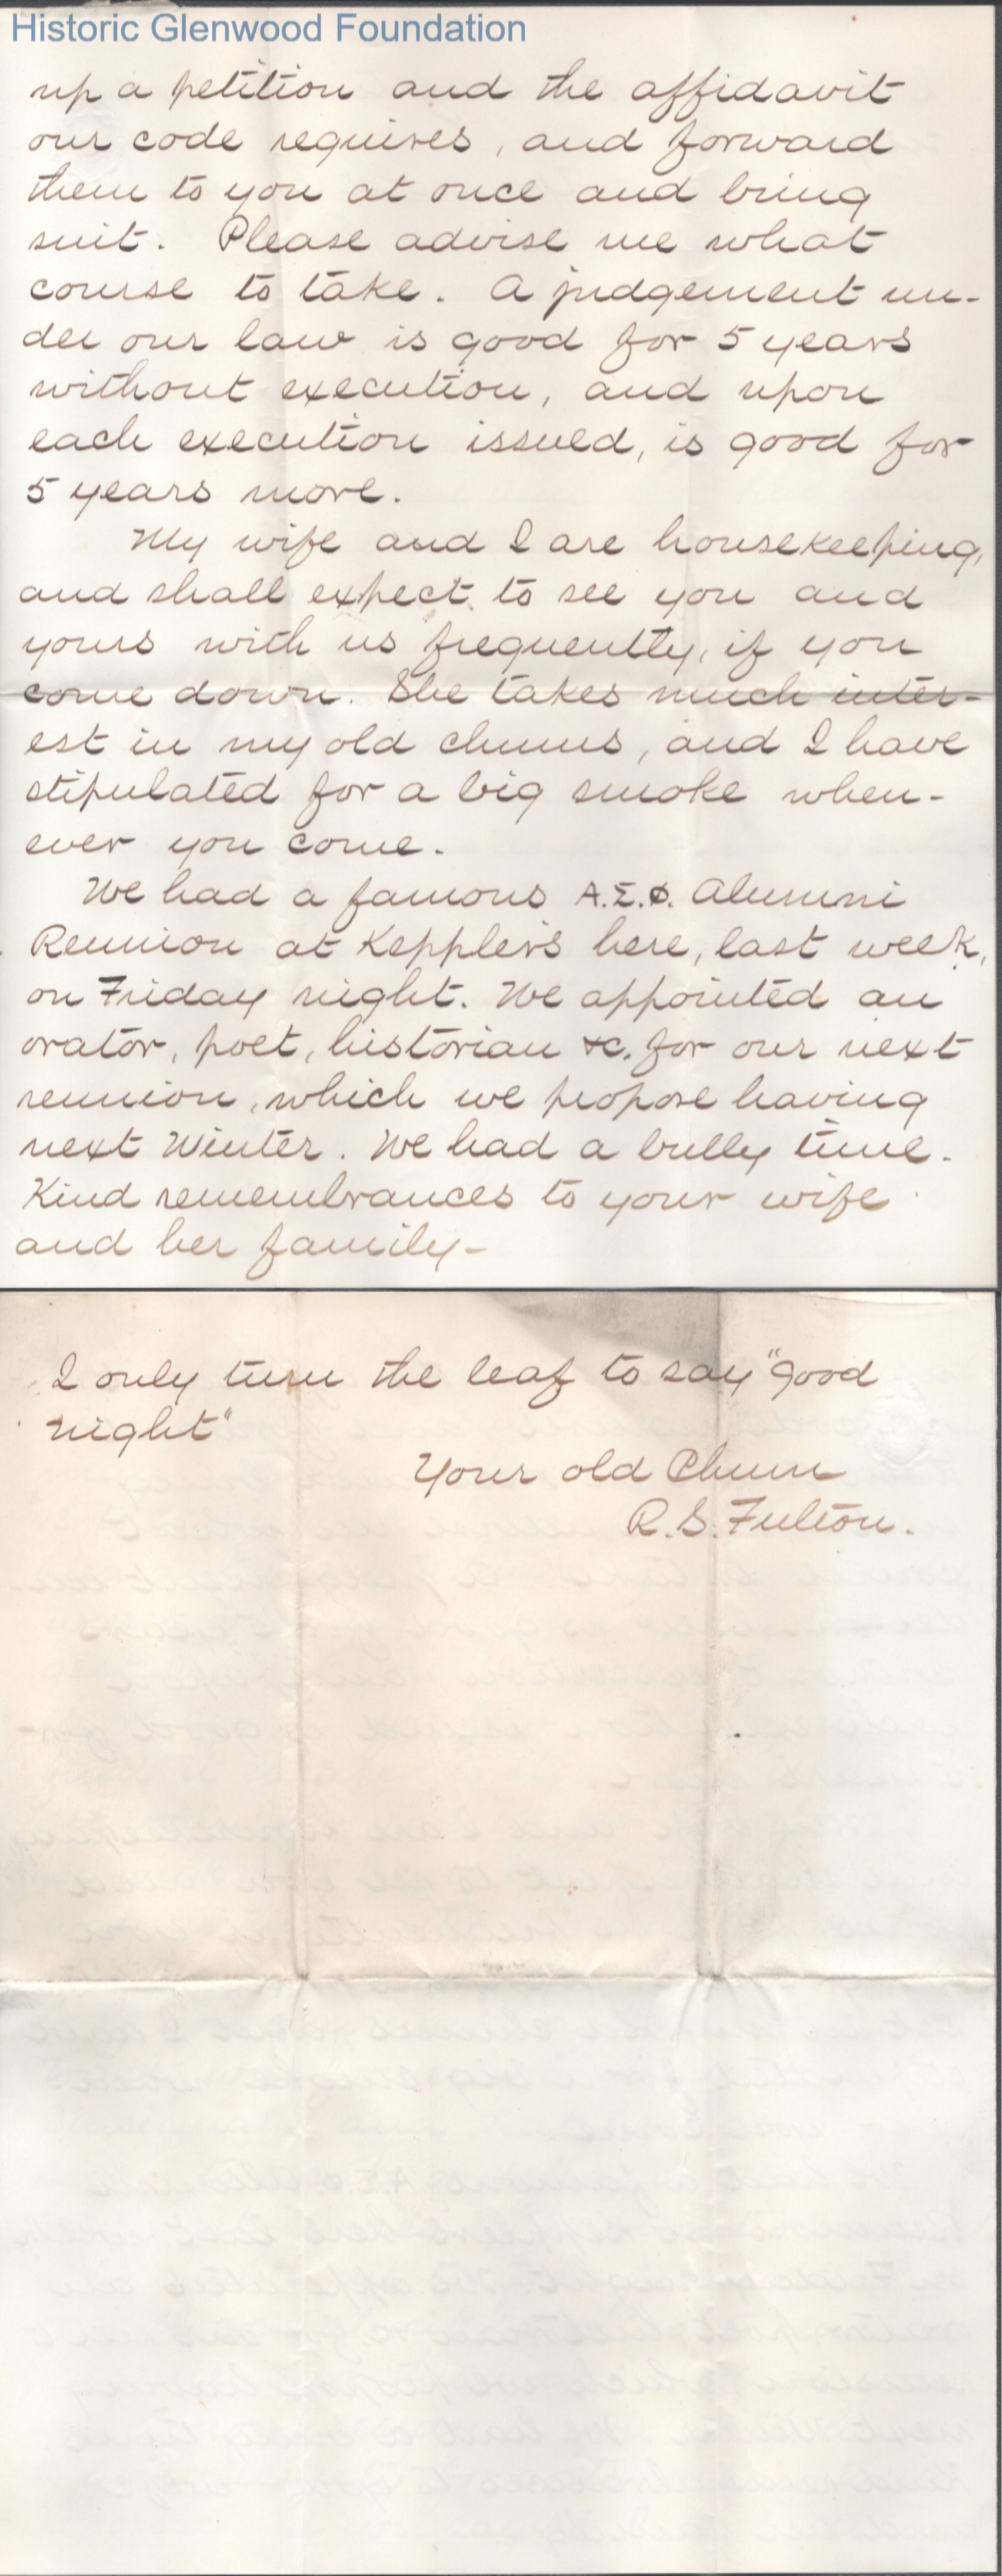 Historic Glenwood Foundation
up a petition and the affidavit
our code requires, and forward
them to you at once and bring
suit. Please advise me what
course to take. A judgement un-
der our law is good for 5 years
without execution, and upon
each execution issued, is good for
5 years more.
My wife and I are housekeeping,
and shall expect to see you and
yours with us frequently, if you
come down. She takes much inter-
est in my old chums, and I have
stipulated for a big smoke when-
ever you come.
We had a famous A.Σ.Φ. Alumni
Reunion at Keppler's here, last week,
on Friday night. We appointed an
orator, poet, historian &c. for our next
reunion, which we propose having
next Winter. We had a bully time.
Kind remembrances to your wife
and her family-
I only turn the leaf to say "good
night"
Your old Chum
R. S. Fulton.